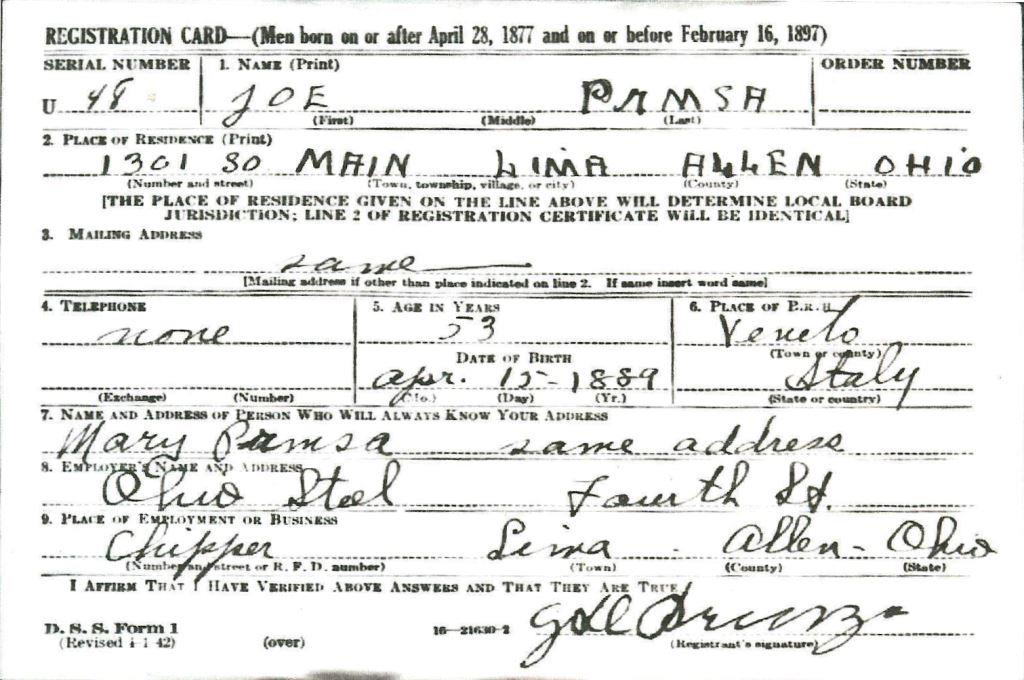 REGISTRATION CARD—(Men born on or after April 28, 1877 and on or before February 16, 1897)
SERIAL NUMBER 1. NAME (Print) ORDER NUMBER
U 48 JOE PRMSA
(First) (Middle) (Last)
2. PLACE OF RESIDENCE (Print)
1301 SO MAIN LIMA ALLEN OHIO
(Number and street) (Town, township, village, or city) (County) (State)
[THE PLACE OF RESIDENCE GIVEN ON THE LINE ABOVE WILL DETERMINE LOCAL BOARD
JURISDICTION; LINE 2 OF REGISTRATION CERTIFICATE WILL BE IDENTICAL]
3. MAILING ADDRESS
same
[Mailing address if other than place indicated on line 2. If same insert word same]
4. TELEPHONE 5. AGE IN YEARS 6. PLACE OF BIRTH
none 53 Veneto
DATE OF BIRTH (Town or county)
Apr. 15 - 1889 Italy
(Exchange) (Number) (Mo.) (Day) (Yr.) (State or country)
7. NAME AND ADDRESS OF PERSON WHO WILL ALWAYS KNOW YOUR ADDRESS
Mary Prmsa same address
8. EMPLOYER'S NAME AND ADDRESS
Ohio Steel Fourth St.
9. PLACE OF EMPLOYMENT OR BUSINESS
Chipper Lima Allen - Ohio
(Number and street or R. F. D. number) (Town) (County) (State)
I AFFIRM THAT I HAVE VERIFIED ABOVE ANSWERS AND THAT THEY ARE TRUE.
D. S. S. Form 1 16—21630-2
(Revised 4-1-42) (over) (Registrant's signature)